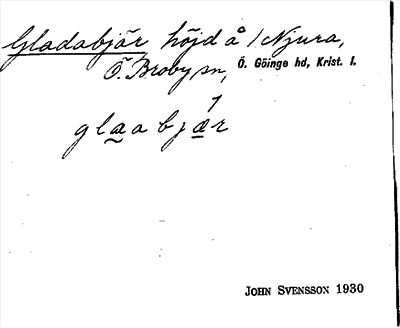 Gladabjär höjd å Njura,
Ö. Broby sn, Ö. Göinge hd, Krist. l.
glaabjär
JOHN SVENSSON 1930